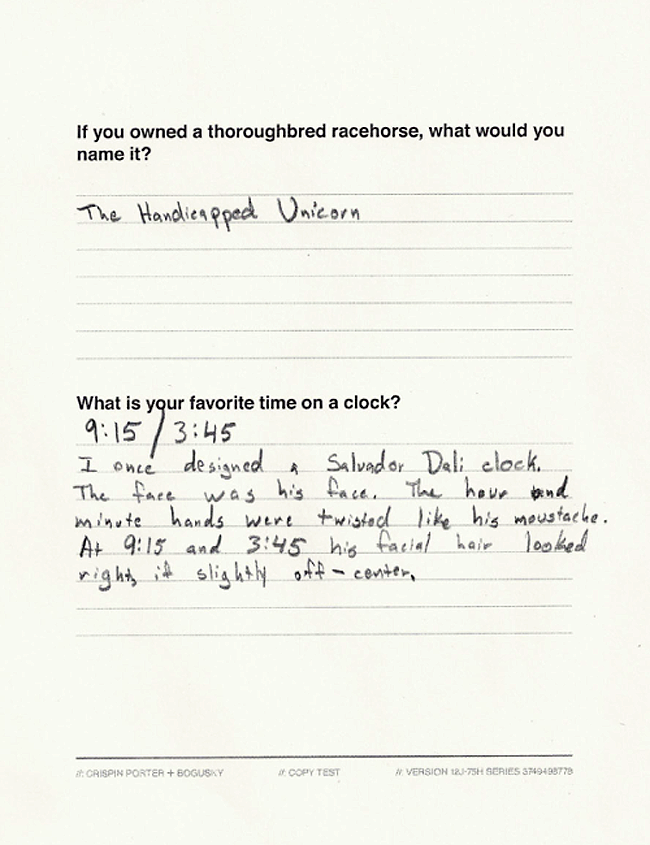 If you owned a thoroughbred racehorse, what would you
name it?
The Handicapped Unicorn
What is your favorite time on a clock?
9:15 / 3:45
I once designed a Salvador Dali clock.
The face was his face. The hour and
minute hands were twisted like his moustache.
At 9:15 and 3:45 his facial hair looked
right, if slightly off-center.
// CRISPIN PORTER + BOGUSKY // COPY TEST // VERSION SERIES